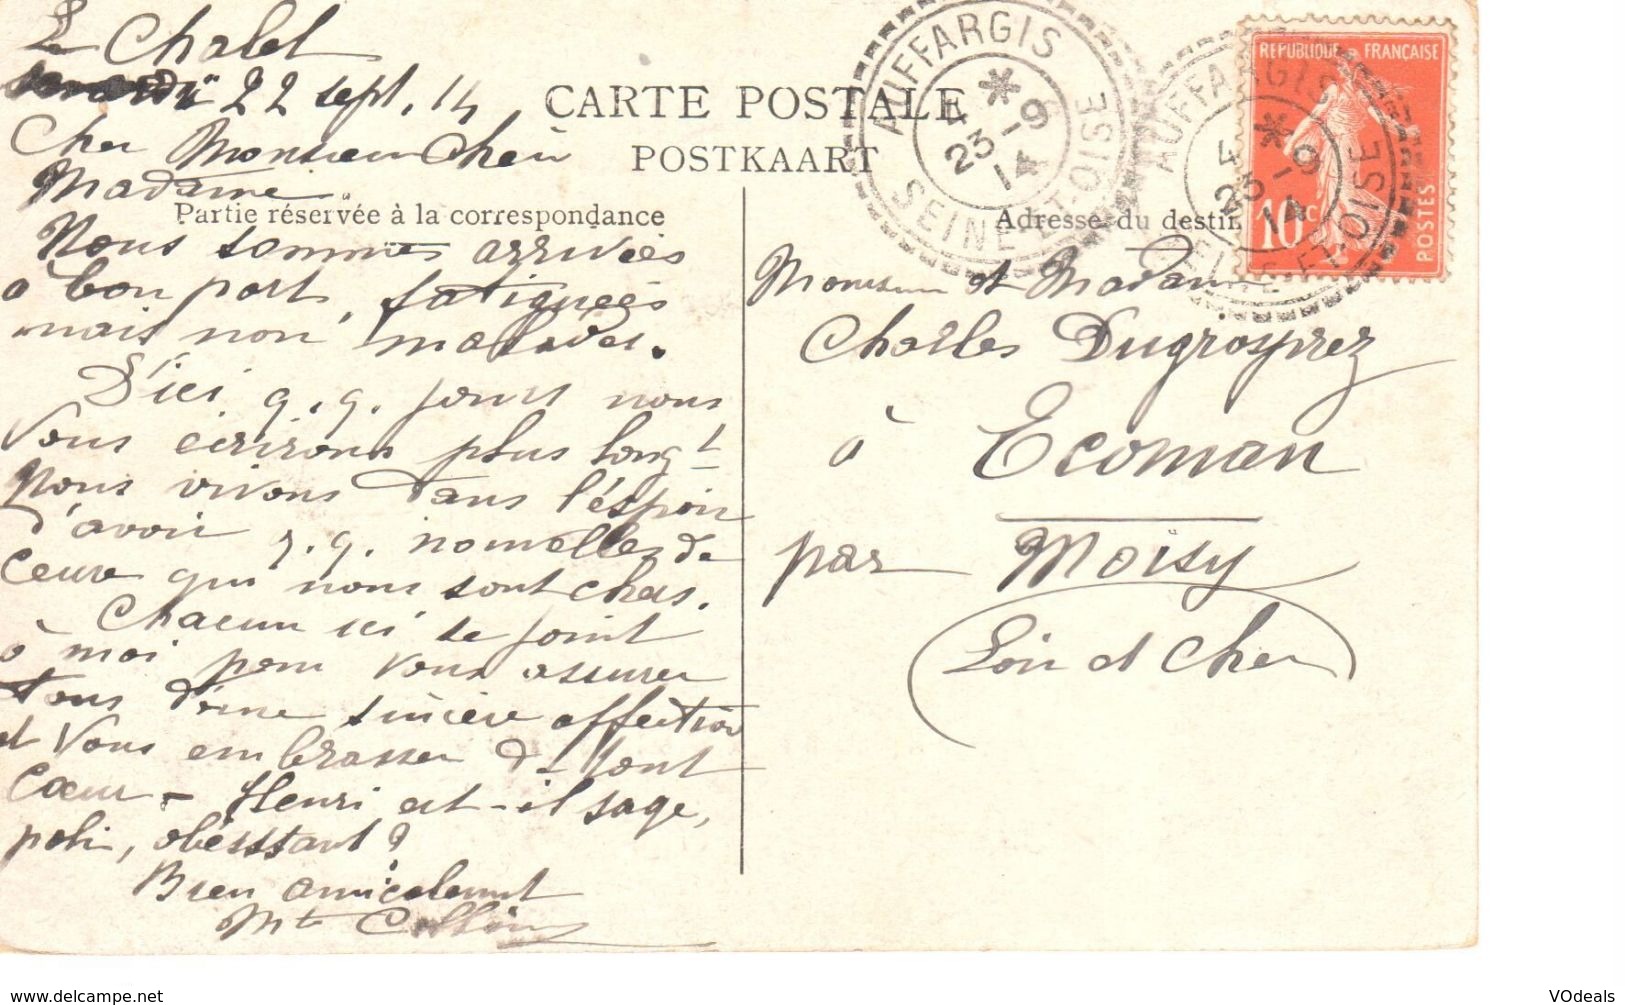 Le Chalet
22 sept. 14
Cher Monsieur Chère
Madame
Nous sommes arrivées
à bon port, fatiguées
mais non malades.
D'ici q.q. jours nous
vous écrirons plus longt
Nous vivons dans l'espoir
d'avoir q.q. nouvelles de
ceux qui nous sont chers.
Chacun ici se joint
à moi pour vous assurer
tous d'une sincère affection
et vous embrasser de tout
cœur - Henri est-il sage,
poli, obéissant ?
Bien amicalement
Mte
CARTE POSTALE
POSTKAART
Partie réservée à la correspondance
Adresse du destin
Monsieur et Madame
Charles Dugrosprez
à Ecoman
par Moisy
Loir et Cher
AUFFARGIS
4 * 23 -9 14
SEINE-ET-OISE
AUFFARGIS
4 * 23 -9 14
SEINE-ET-OISE
REPUBLIQUE FRANÇAISE
10c
POSTES
http://www.delcampe.net
VOdeals